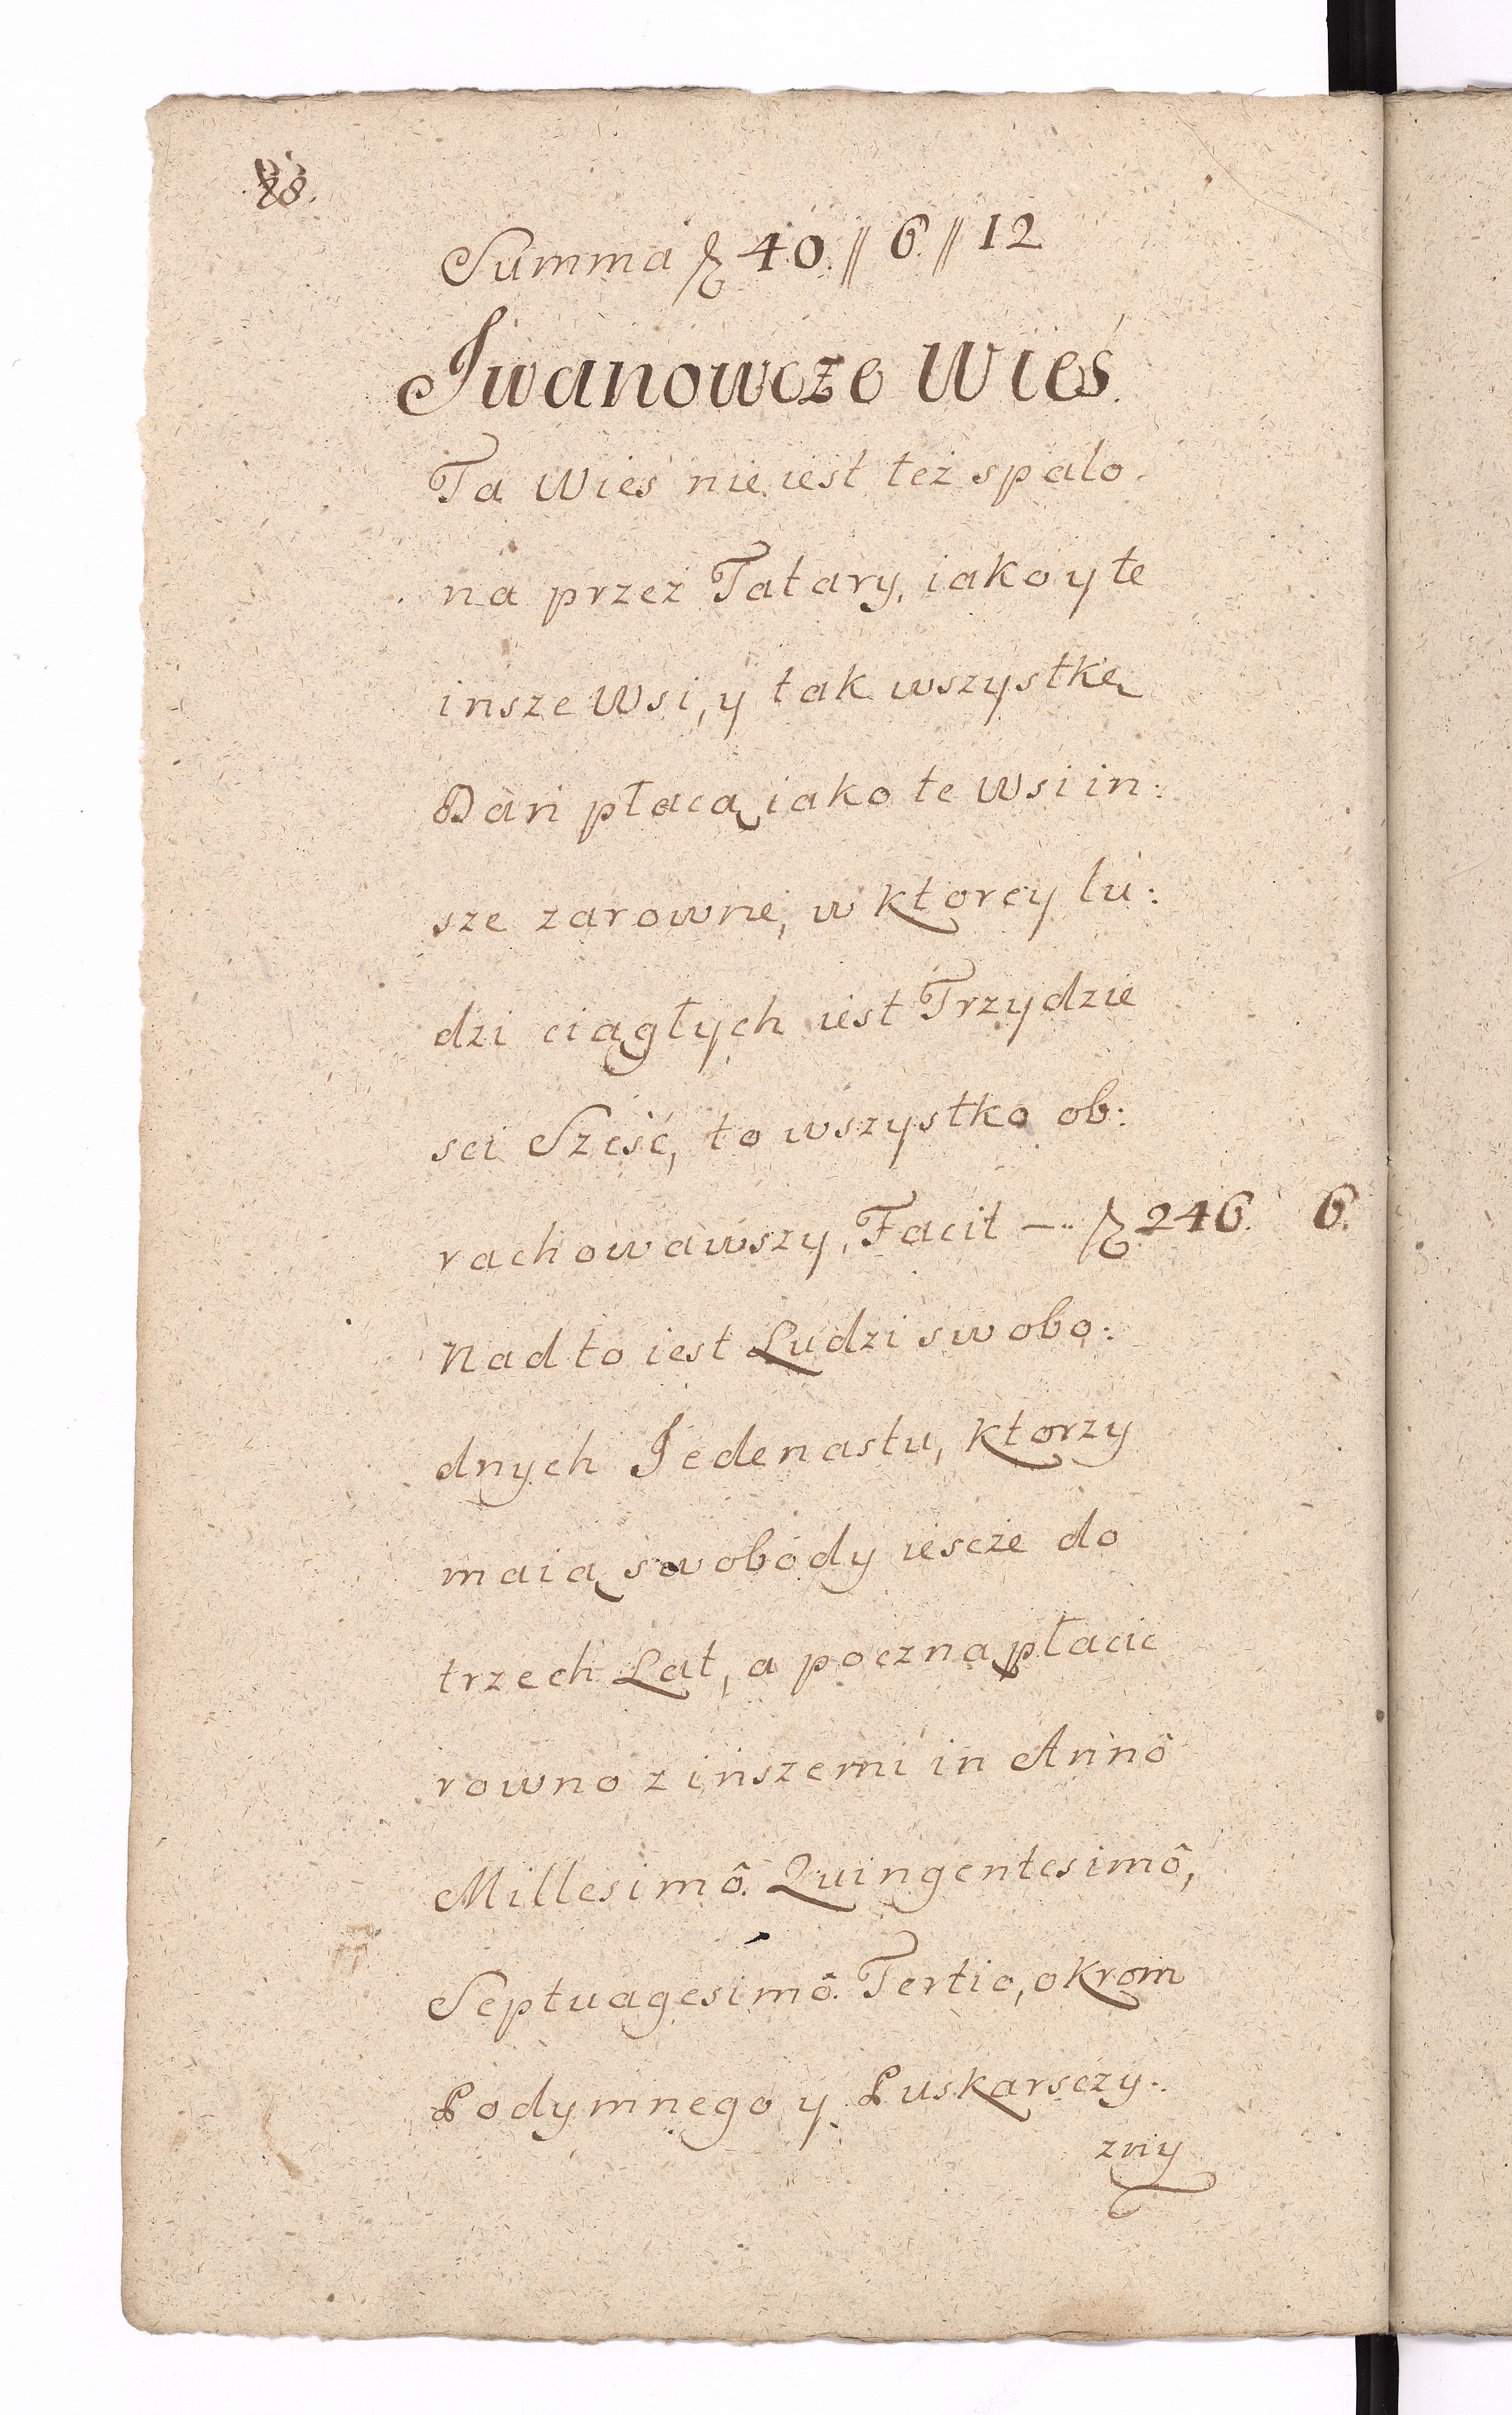 88.
Summa fl 40. // 6. // 12
Jwanowcze Wieś.
Ta Wieś nie iest też spalo.
na przez Tatary, iako y te
insze Wsi, y tak wszystkę
Dań płacą iako te Wsi in:
sze zarowne, w ktorey lu:
dzi ciągłych iest Trzydzie
sci Sześć, to wszystko ob:
rachowawszy, Facit — fl 246. 6.
Nad to iest Ludzi swobo:
dnych Jedenastu, ktorzy
maią swobody iescze do
trzech Lat, a poczną płacic
rowno z inszemi in Annô
Millesimô. Quingentesimô,
Septuagesimô. Tertio, okrom
Podymnego y Puskarsczy:
zny